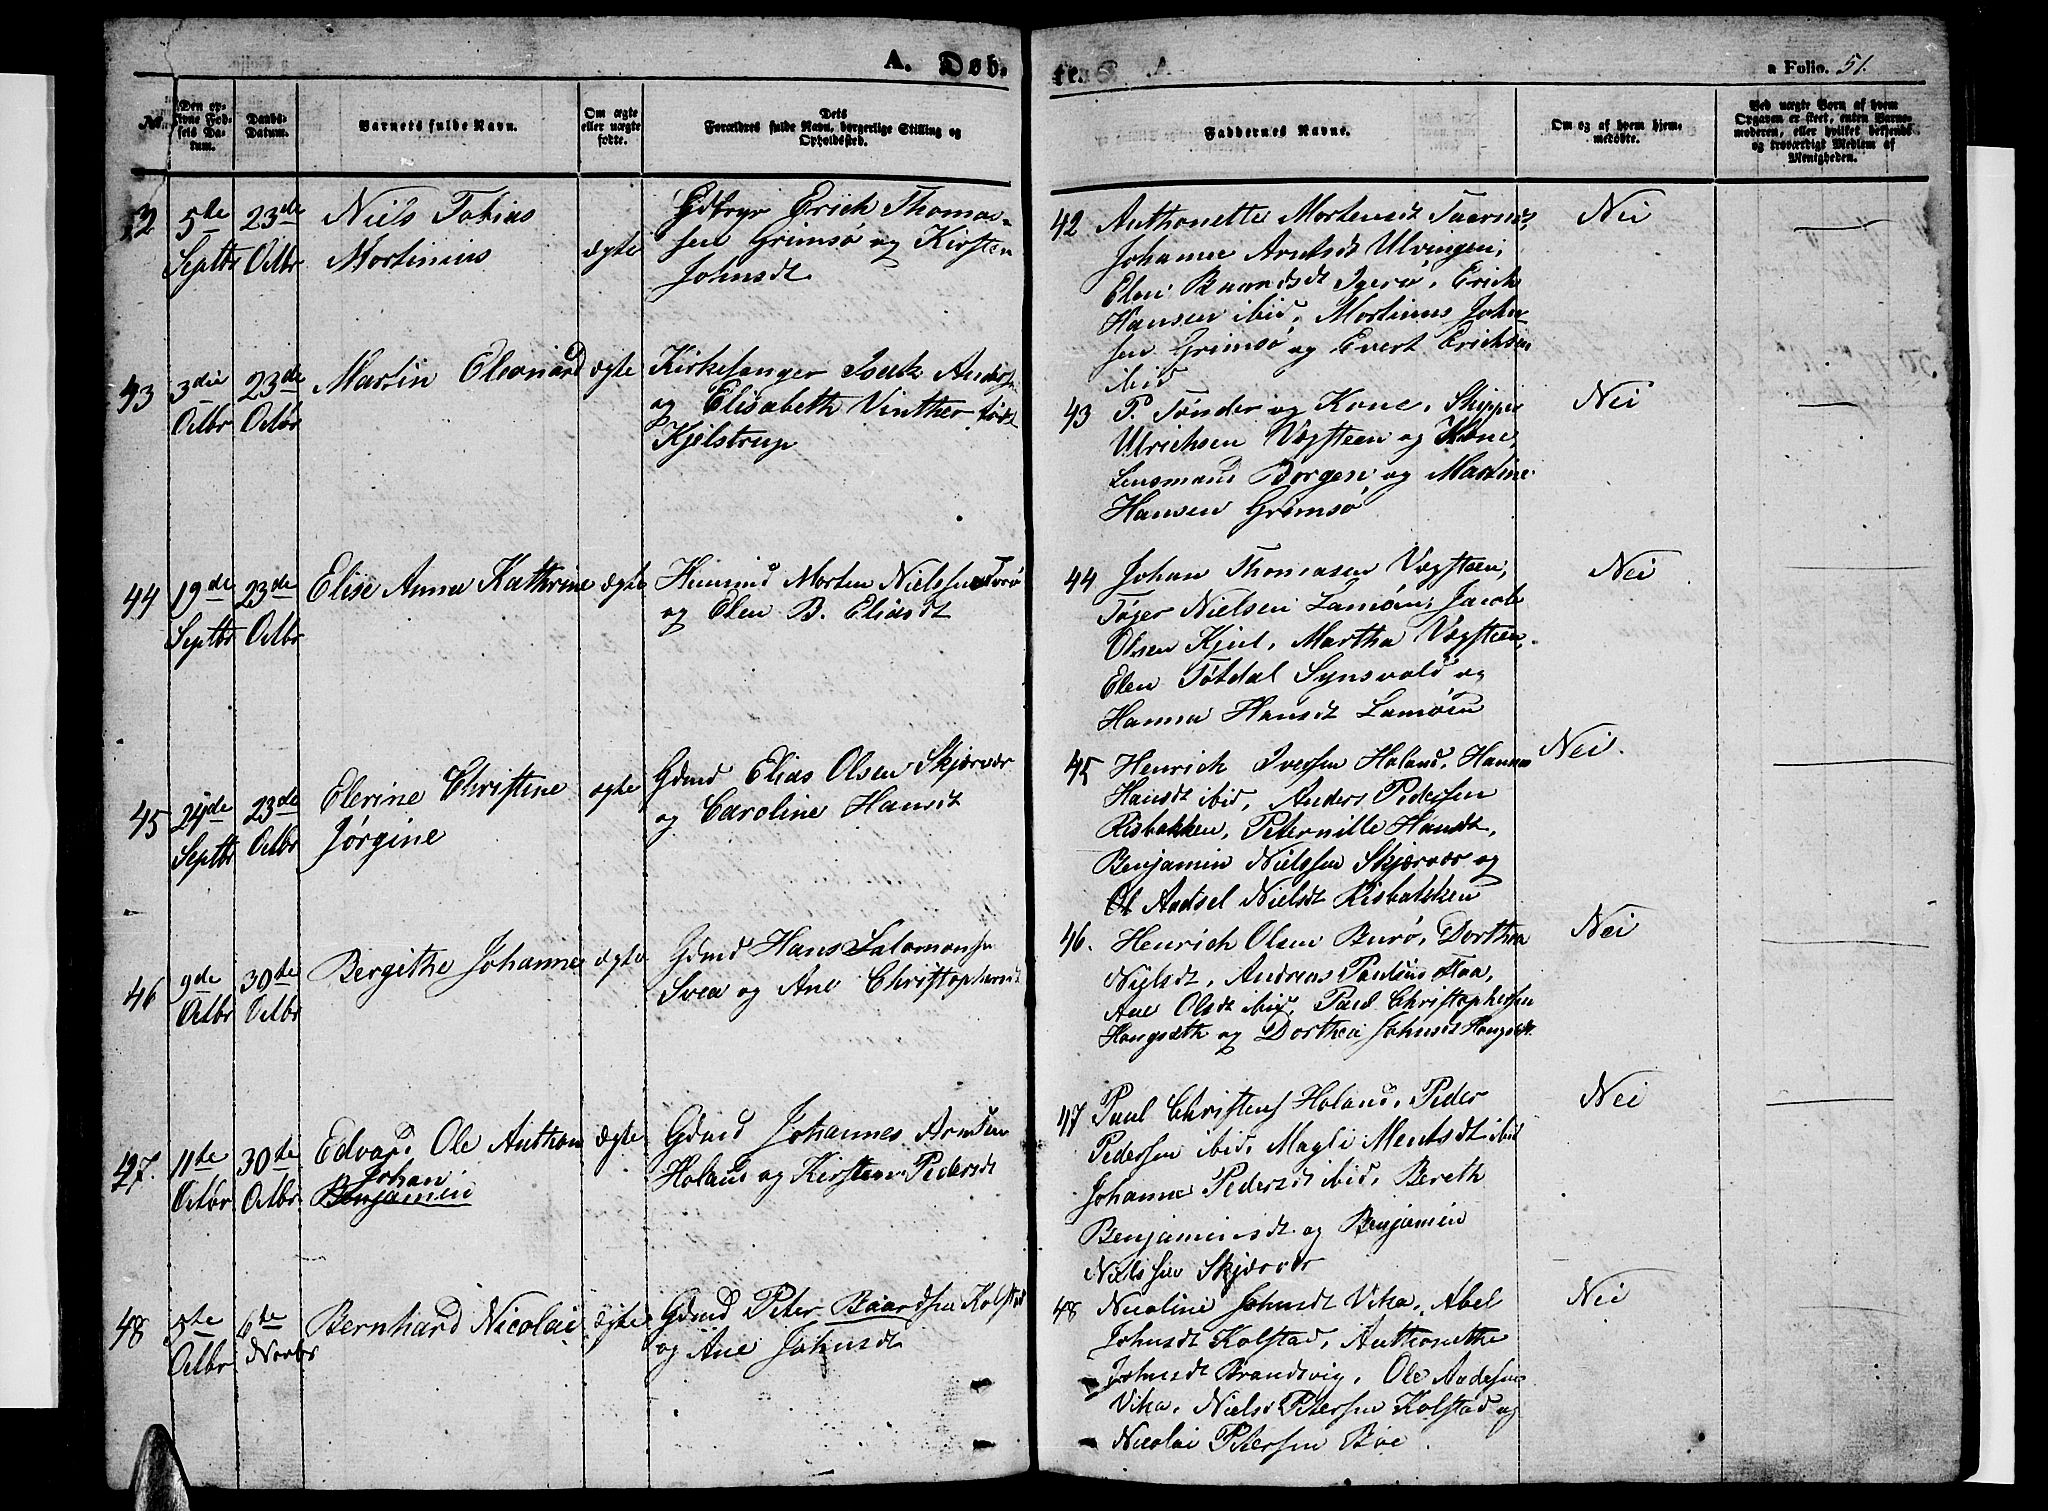 A. Døb-
te.
A.
a Folio. 51.
No.
Den op-
givne Fød-
sels Da-
tum.
Daabs-
Datum.
Barnets fulde Navn.
Om ægte
eller uægte
fødte.
Dets
Forældres fulde Navn, borgerlige Stilling og
Opholdssted.
Faddernes Navne.
Om og af hvem hjem-
medøbte.
Ved uægte Børn af hvem
Opgaven er skeet, enten Barne-
moderen, eller hvilket bekjendt
og troværdigt Medlem af
Menigheden.
42 5te Septbr 23de Octbr
Niels Tobias
Mortinius
ægte
Erich Thomas-
sen Grimsø og Kirsten
Johnsdt
42 Anthonette Mortensdt
Johanne Arntsdt Ulvingen,
Elen Igerø, Erich
Hansen ibid, Mortinus John-
sen Grimsø og Evert Erichsen
ibid
Nei
43 3die Octbr 23de Octbr
Martin Oleonard
ægte
Kirkesanger Isak Anders
og Elisabeth Vinther født
Kjelstrup
43 P. Tønder og Kone, Skipper
Ulrichsen Vægsteen og Kone,
Lensmand Borgen og Martine
Hansen Grimsø
Nei
44 19de Septbr 23de Octbr
Elise Anna Kathrine
ægte
Huusmd Morten Nielsen
og Elen B. Eliasdt
44 Johan Thomasen Vægsteen,
Tøger Nielsen Lamøen, Jacob
Olsen Kjul, Martha Vægsteen,
Elen Tøtdal Synsvold og
Hanna Hansdt Lamøen
Nei
45 24de Septbr 23de Octbr
Elerine Christine
Jørgine
ægte
Gdmd Elias Olsen Skjærvær
og Caroline Hansdt
45 Henrich Iversen Holand, Hanna
Hansdt ibid, Anders Pedersen
Risbakken, Peternille Hansdt,
Benjamin Nielssen Skjærvær og
Nielsdt Risbakken
Nei.
46 9de Octbr 30te Octbr
Bergithe Johanne
ægte
Gdmd Hans Salamonsen
Svea og Ane Christophersdt
46. Henrich Olsen Burø, Dorthea
Nielsdt, Andreas Paulsen Haa,
Ane Olsdt ibid, Paul Christophersen
Hongsæth og Dorthea Johnsdt Hongsæt.
Nei
47. 11te Octbr 30te Octbr
Edvard Ole Anthon
Johan
Benjamin
ægte
Gdmd Johannes Arntsen
Holand og Kirsten Pedersdt
47 Paul Christens Holand, Peder
Pedersen ibid, Magli Mentsdt ibid
Johanna Pedersdt ibid, Bereth
Benjaminsdt og Benjamin
Nielssen Skjærvær
Nei
48 5te Octbr 6te Novbr
Bernhard Nicolai
ægte
Gdmd Peter Baardsen Kolstad
og Ane Johnsdt
48 Nicoline Johnsdt Vika, Abel
Johnsdt Kolstad, Anthonethe
Johnsdt Brandsvig, Ole Andersen
Vika, Niels Petersen Kolstad og
Nicolai Petersen Bøe.
Nei